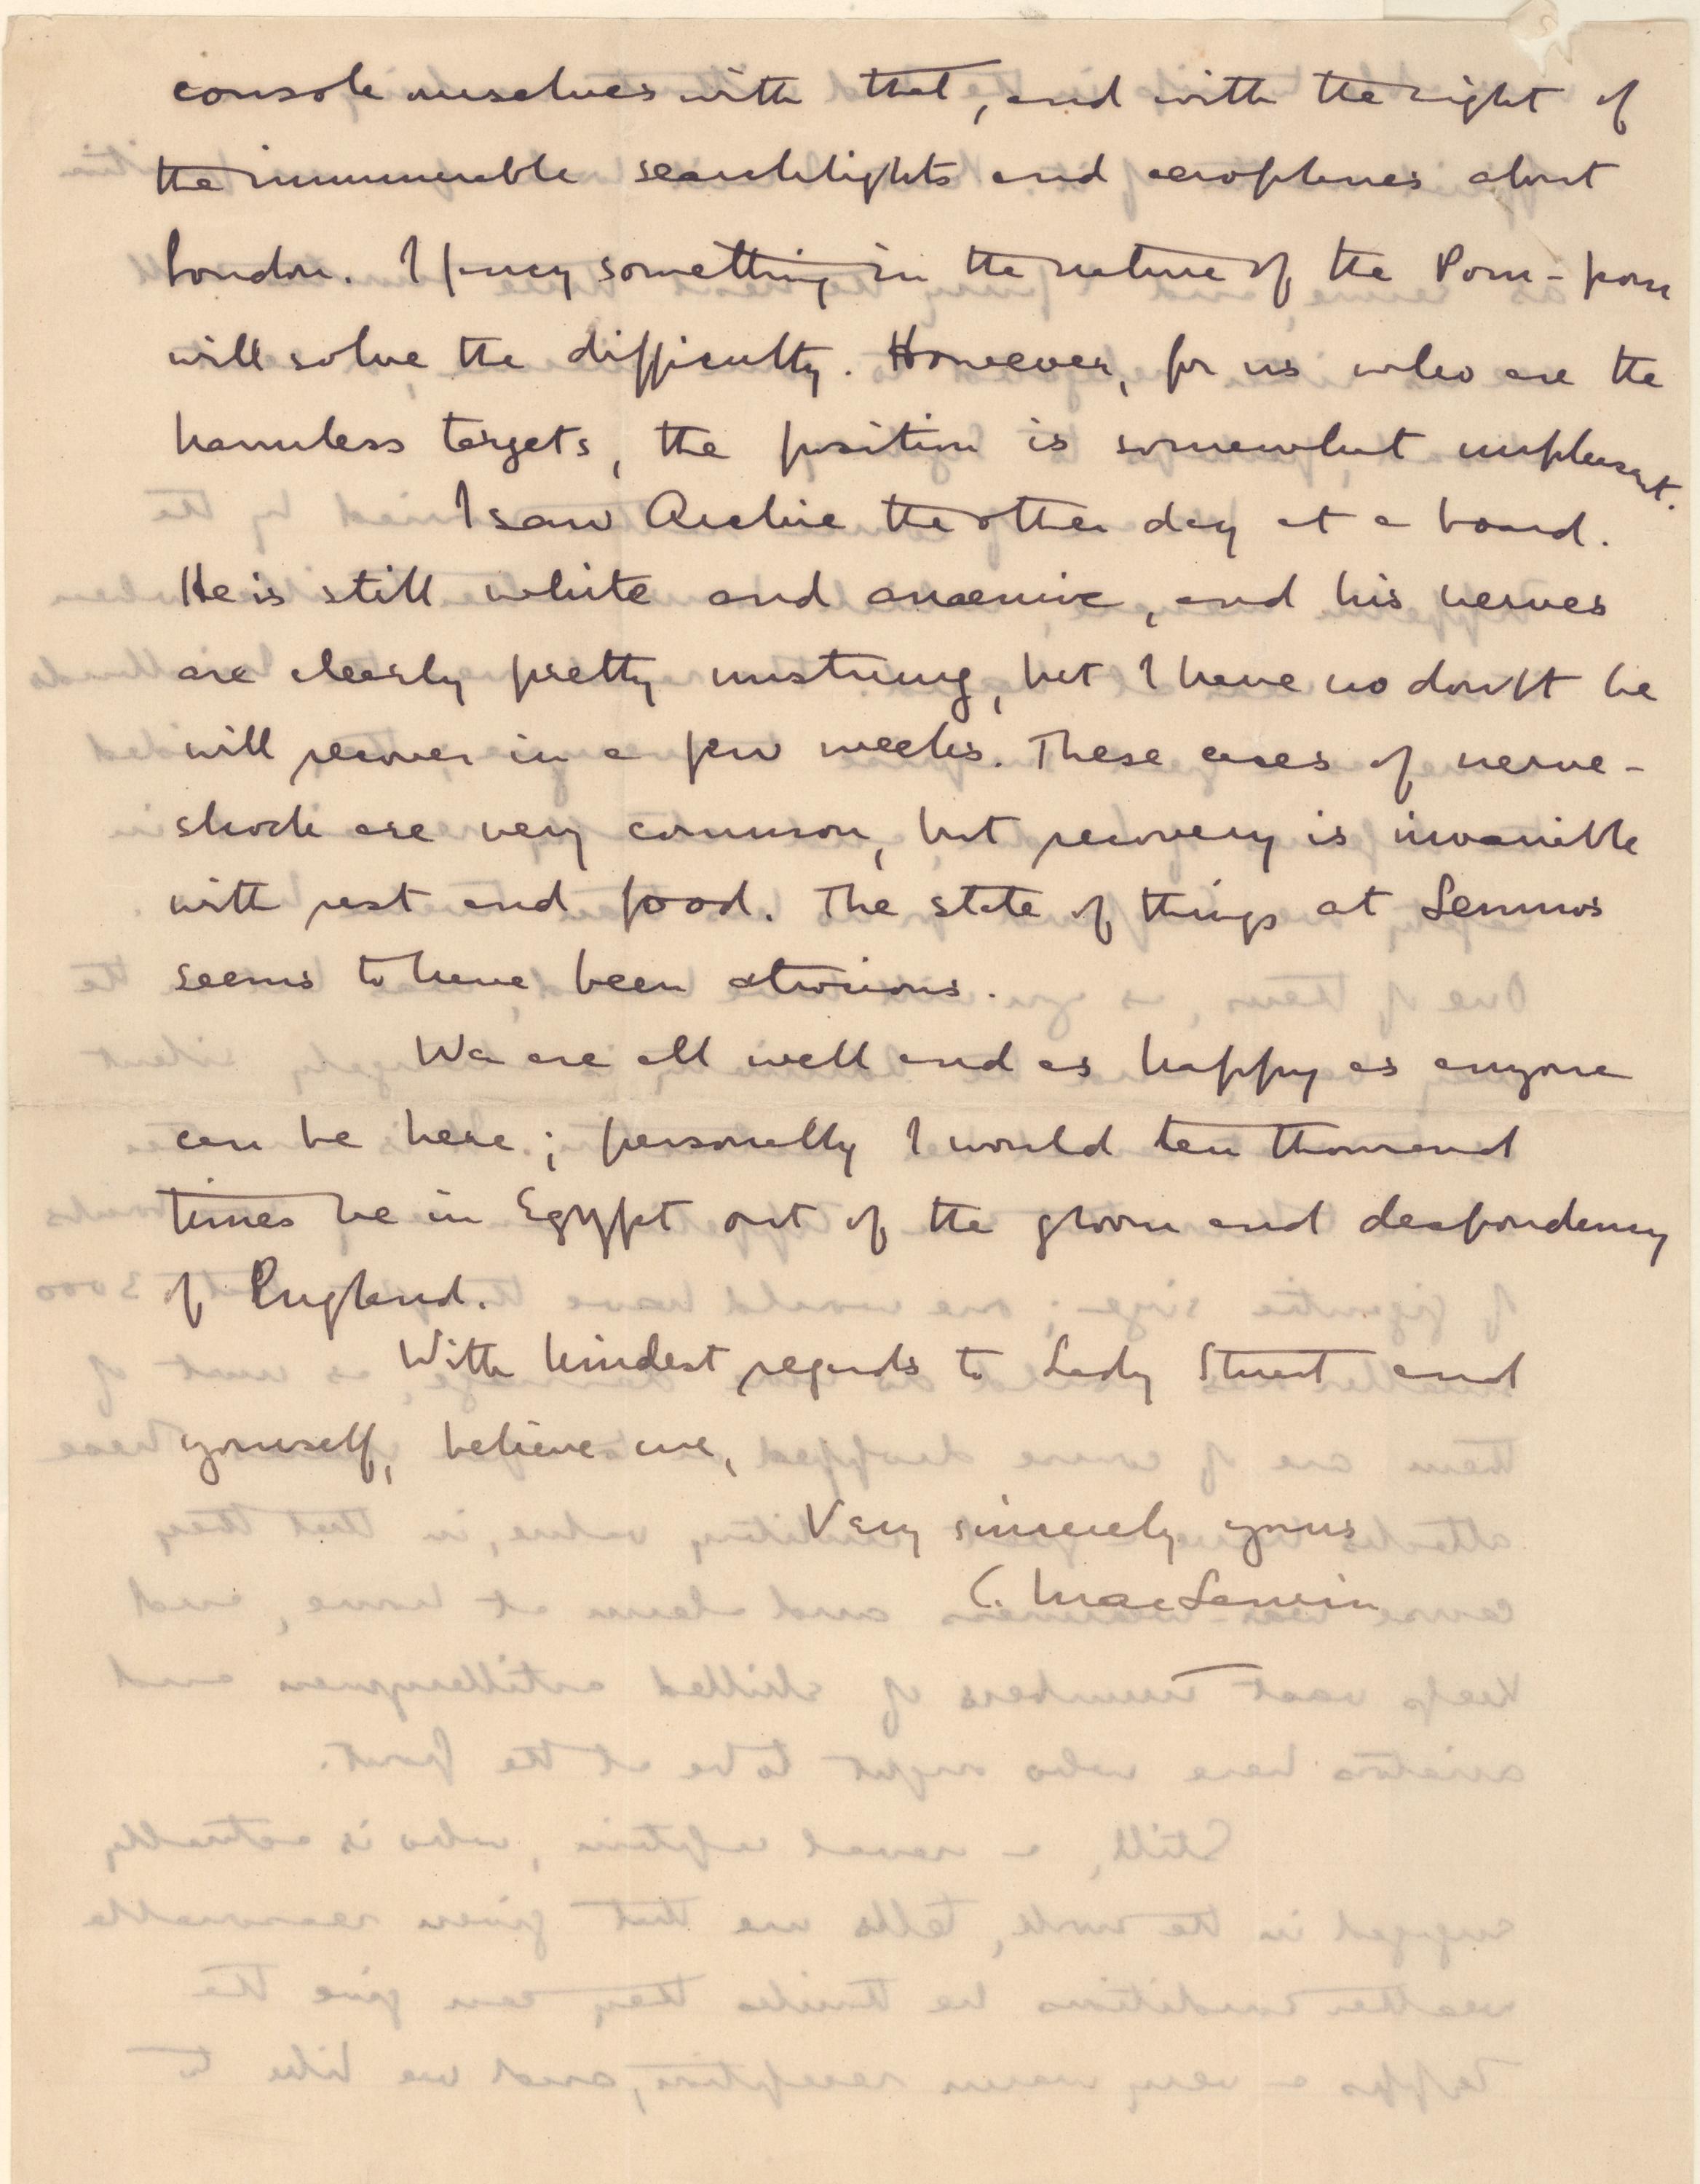 console ourselves with that, and with the sight of
the innumerable searchlights and aeroplanes about
London. I fancy something in the nature of the Pom-pom
will solve the difficulty. However, for us who are the
harmless targets, the position is somewhat unpleasant.
I saw Archie the other day at a board.
He is still white and anaemic, and his nerves
are clearly pretty unstrung, but I have no doubt he
will recover in a few weeks. These cases of nerve-
shock are very common, but recovery is invariable
with rest and food. The state of things at Lemnos
seems to have been atrocious.
We are all well and as happy as anyone
can be here; personally I would ten thousand
times be in Egypt out of the gloom and despondency
of England.
With kindest regards to Lady Stuart and
yourself, believe me,
Very sincerely yours
C. MacLaurin